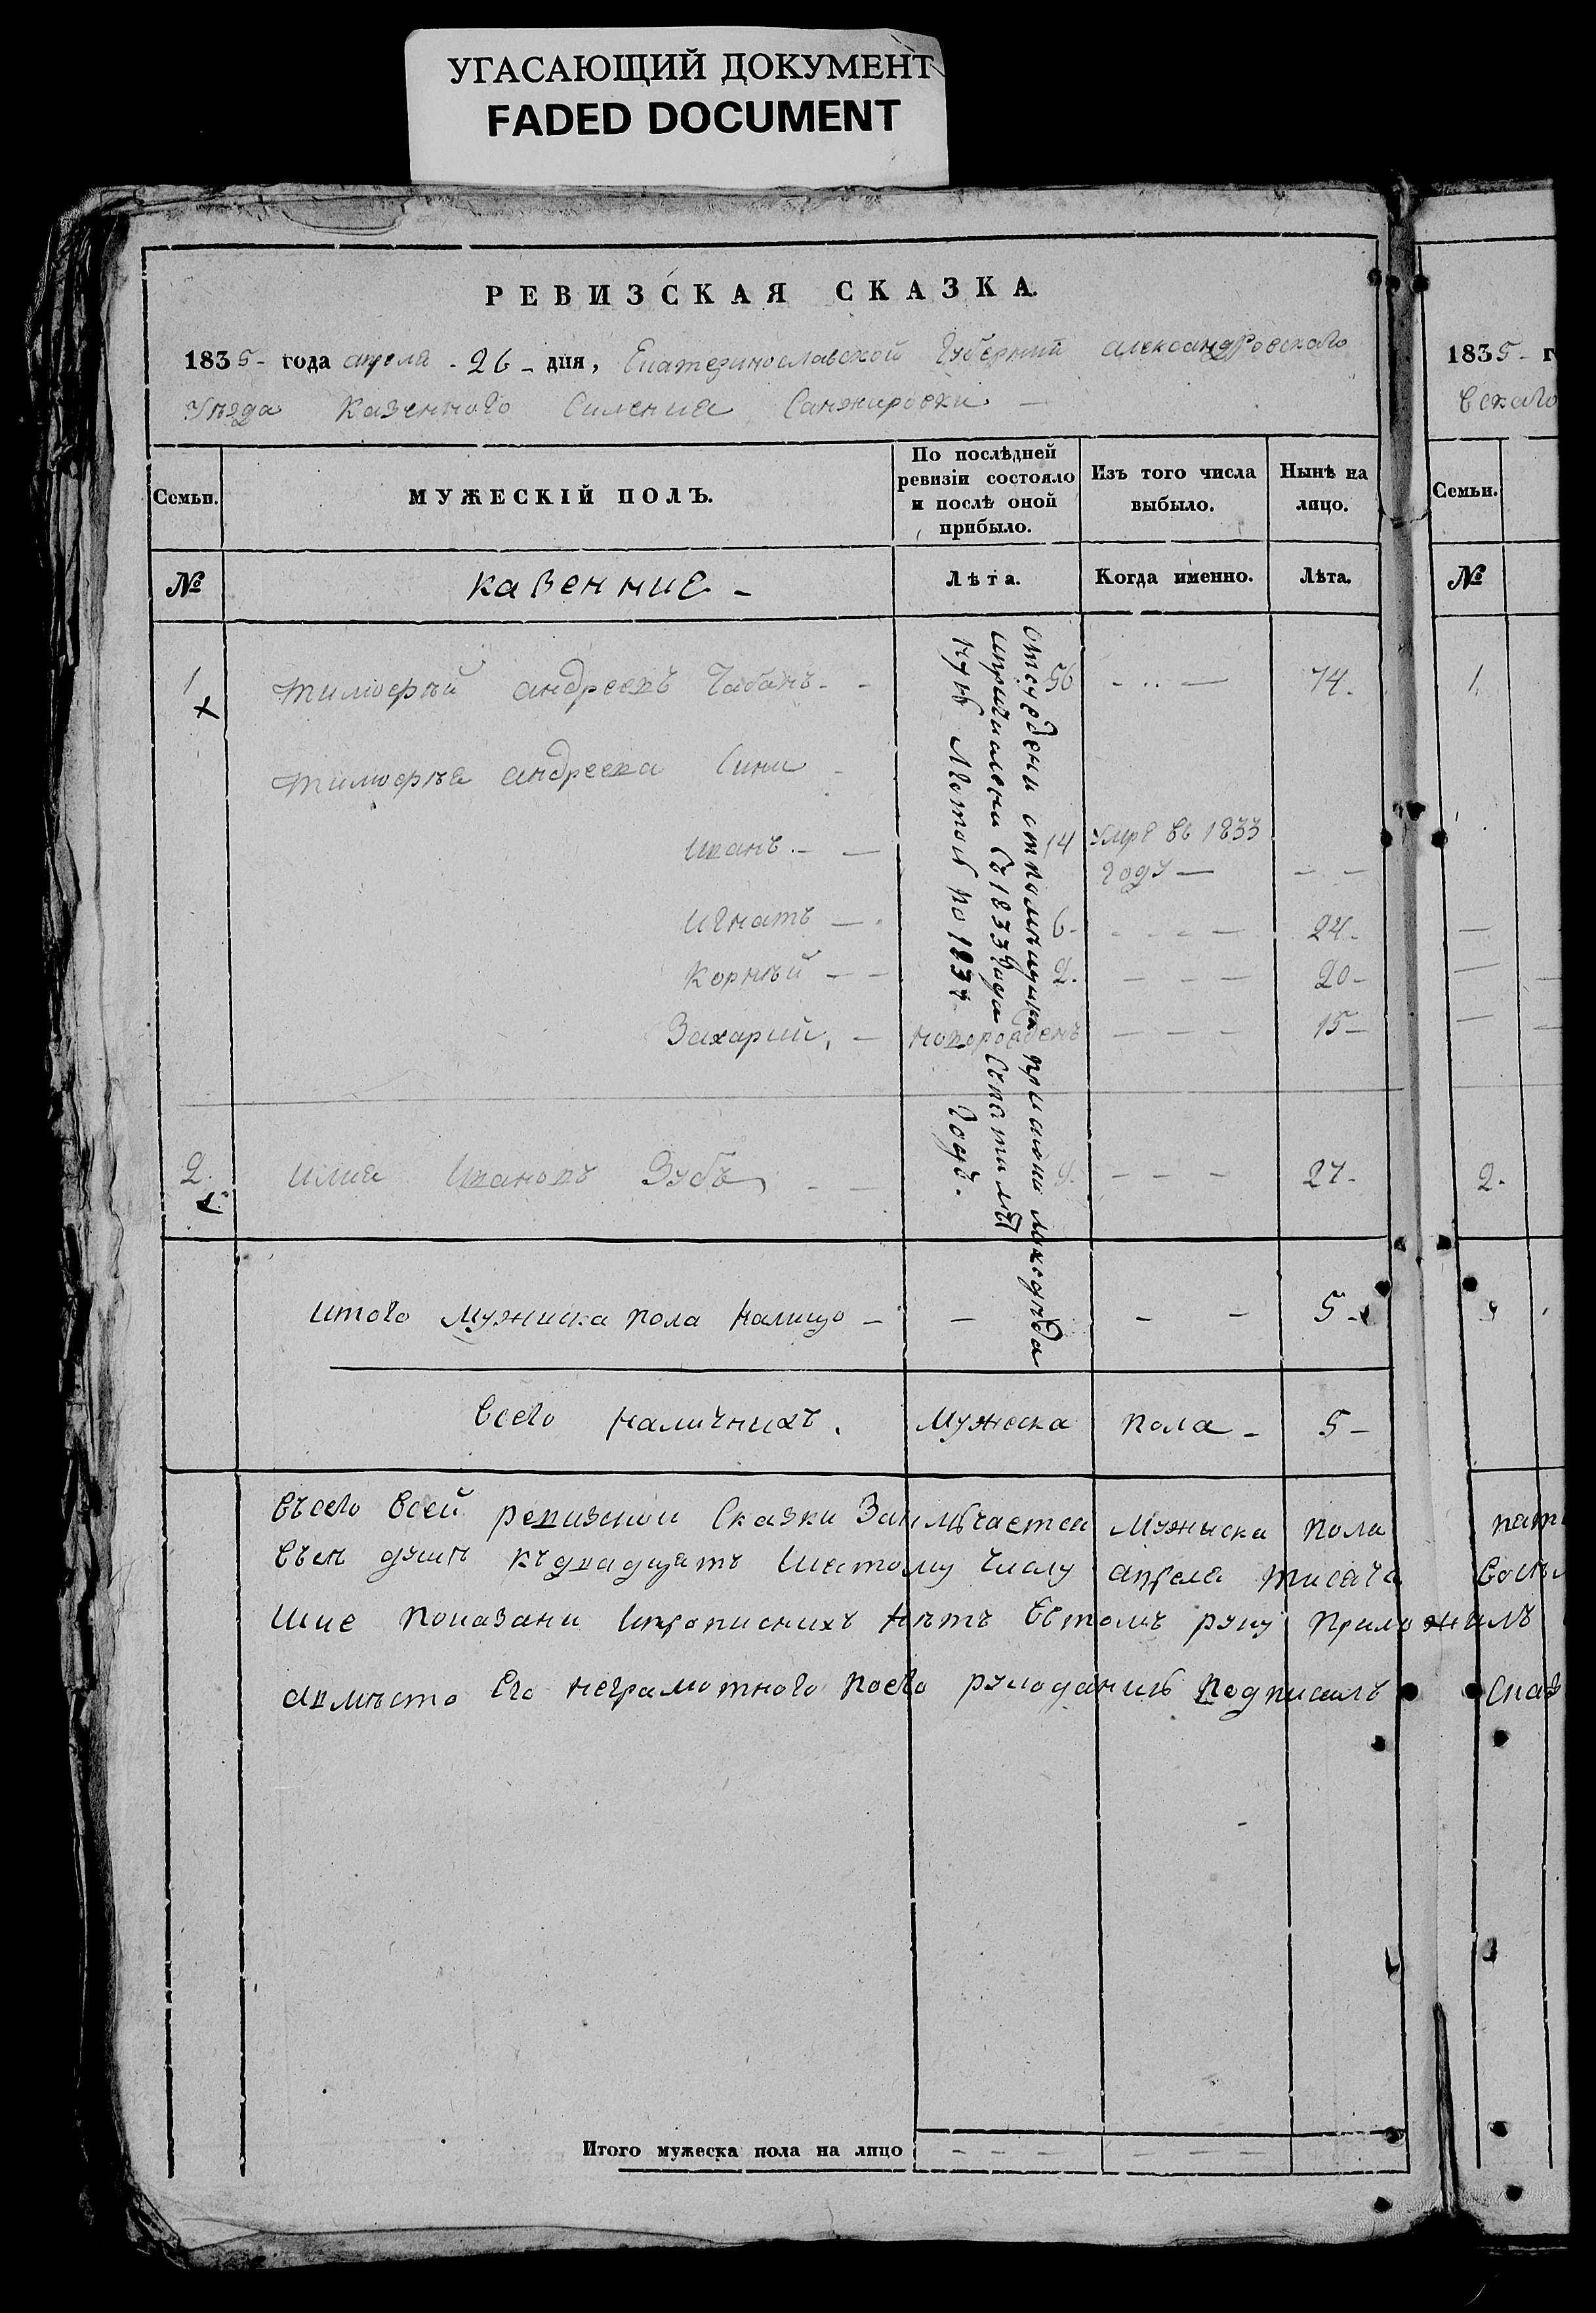 УГАСАЮЩИЙ ДОКУМЕНТ
FADED DOCUMENT
РЕВИЗСКАЯ СКАЗКА.
1835- года апреля - 26 - дня, Екатеринославской Губернии александровскаго
Уезда Казенного Силения Санжировки —
Семьи.
МУЖЕСКІЙ ПОЛЪ.
По послѣдней ревизіи состояло и послѣ оной прибыло.
Изъ того числа выбыло.
Нынѣ на лицо.
№
казенние -
Лѣта.
Когда именно.
Лѣта.
1 тимофѣй андреевъ Чабанъ - - 56 - .. — 74.
х
тимофѣя андреева Сини -
иванъ. - — 14 Умре въ 1833
году — — —
игнатъ — . 6 - - - - — 24.
Корнѣй — — 2. — — — 20 -
Захарий, — новорожденъ — — — 15 —
2. илия Ивановъ Зубъ, - — 9. — — — 27 -
х
итого мужиска пола налицо — — — — 5 -
всего наличнихъ. мужеска пола - 5 -
всего всей ревизкой Сказки мужыска пола
душъ къдвадцать шестому числу апреля тисяча
шие показани ипрописнихъ нѣтъ втомъ руку приложилъ
авмѣсто его неграмотного поего рукоданию подписалъ
Итого мужеска пола на лицо - - - — — —
1835 - г
вскаго
Семьи.
№
1.
2.